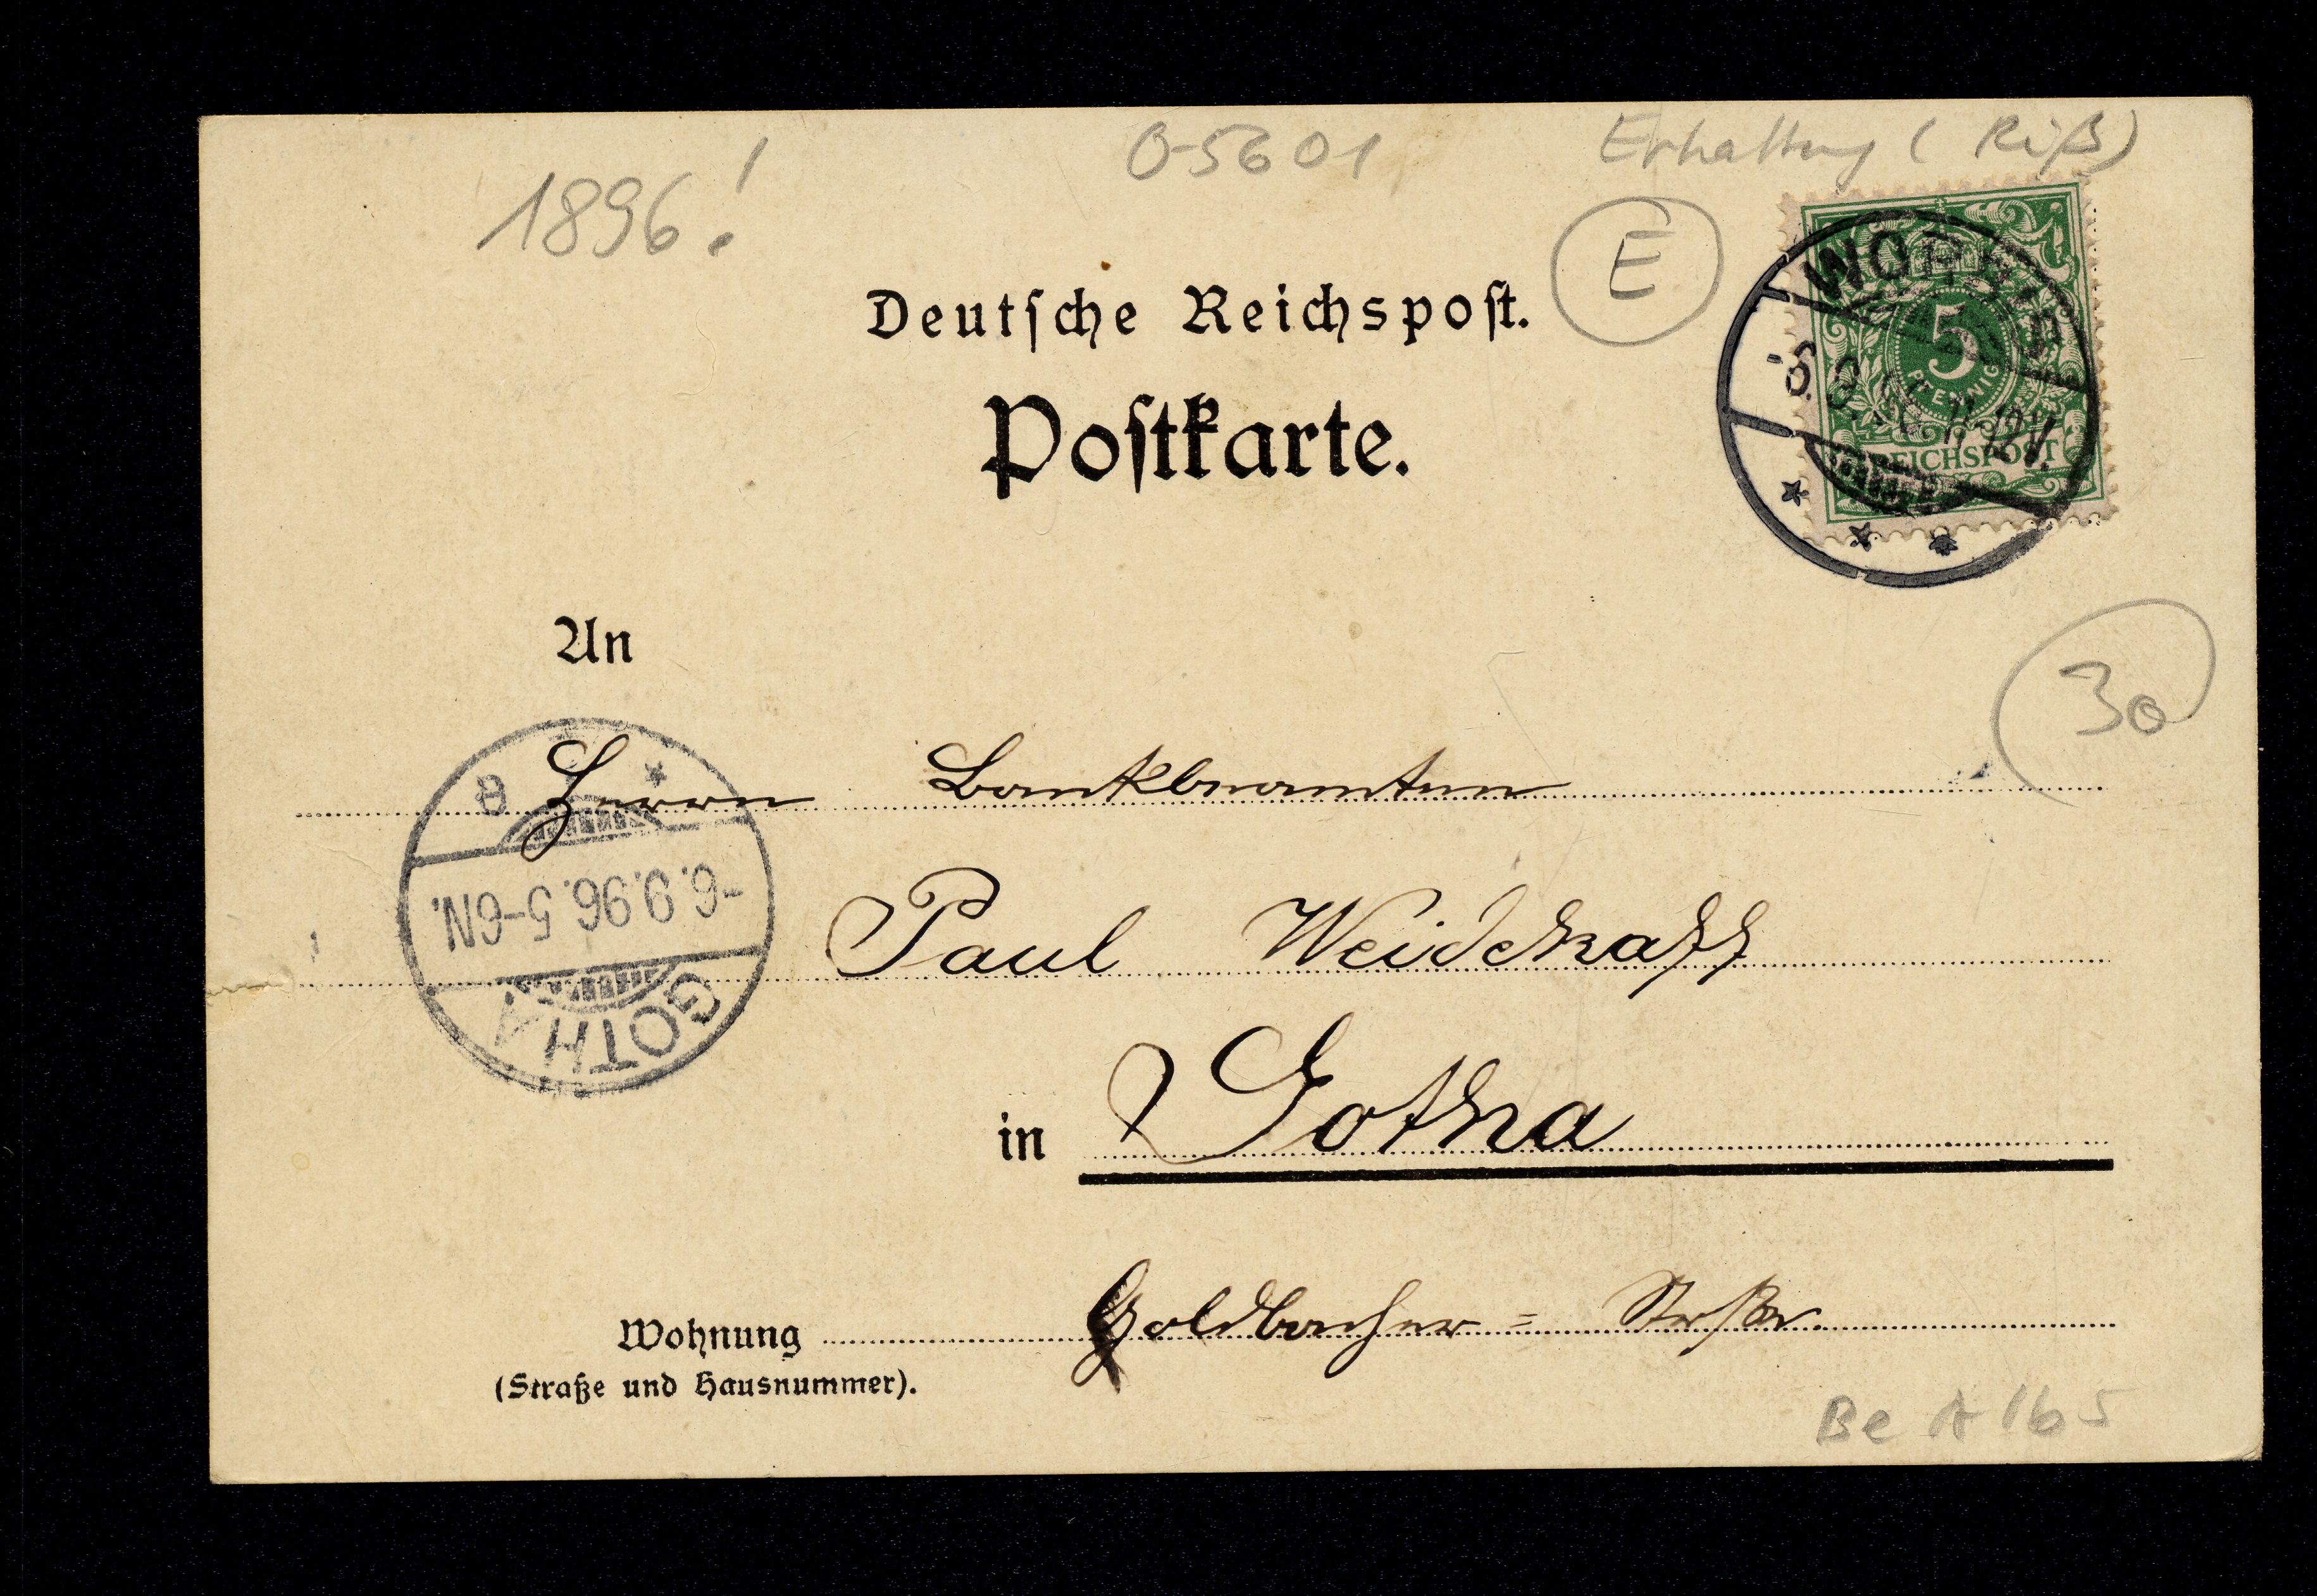 1896!
O-5601
Erhaltung (Riß)
E
Deutsche Reichspost.
Postkarte.
WORBIS
5
PFENNIG
REICHSPOST
30
An
Herrn Bankbeamten
Paul Weidekaff
in Gotha
GOTHA
-6.9.96.5-6N.
Wohnung Goldbacher = Straße.
(Straße und Hausnummer).
Be A 165